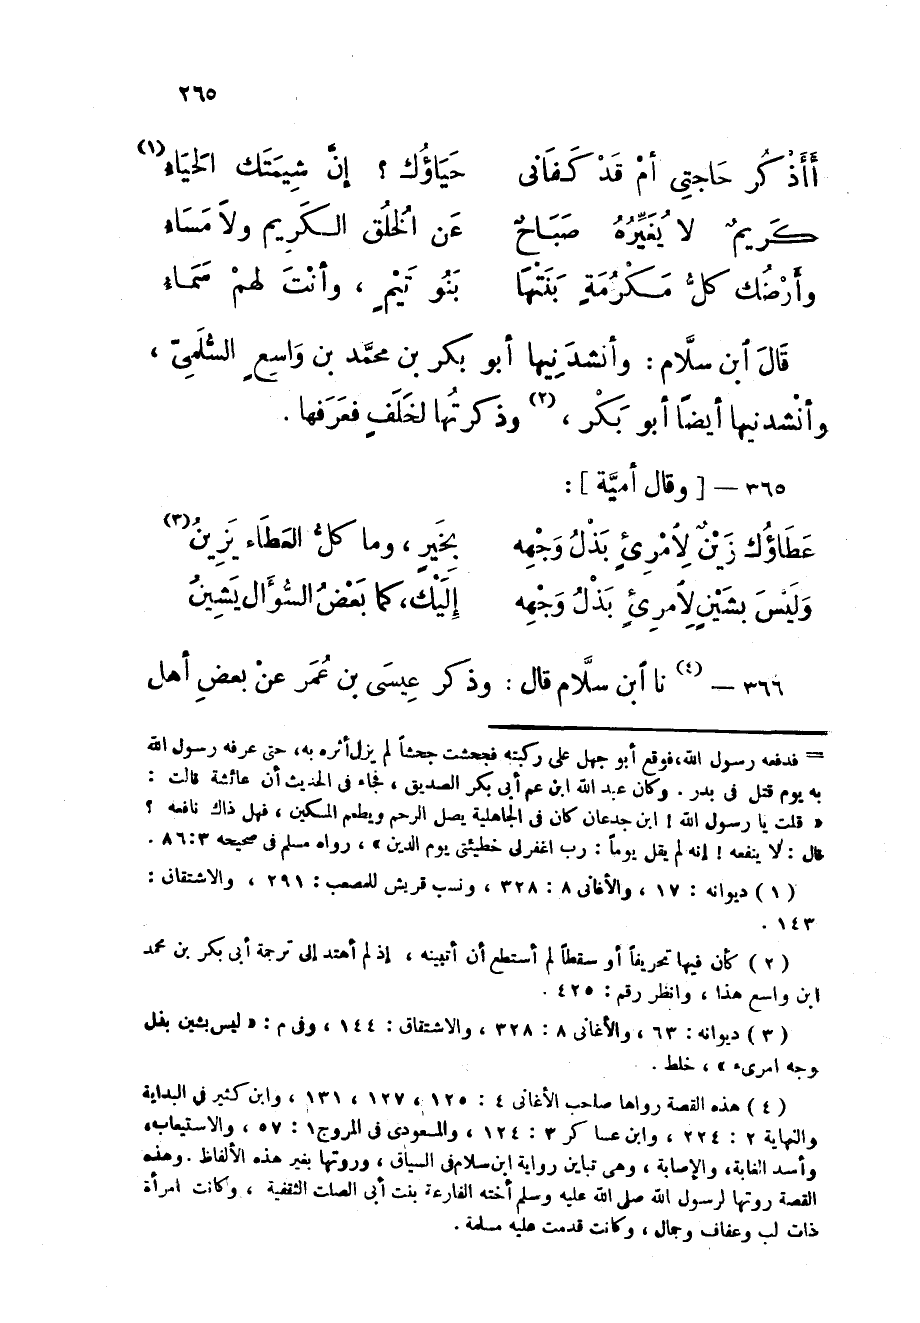 ٢٦٥
أَأَذْكُر حَاجتِي أمْ قَدْ كَفَانى حَيَاؤُك ؟ إنَّ شِيمَتَك الحَيَاء (١)
كَرِيمٌ لا يُغَيِّرُهُ صَبَاحٌ عَن الْخلُق الكَرِيم ولاَ مَسَاء
وأَرْضُك كلُّ مَكْرُمَةٍ بَنَتْهَا بَنُو تَيْمٍ ، وأنْتَ لهمْ سَمَاء
قَالَ ٱبن سلَّام : وأنشدَنِيها أبو بكر بن محمَّد بن وَاسِعٍ السُّلَمِىّ ،
وأنْشدنيها أيضًا أبو بَكْر ، (٢) وذكرتُها لخَلَفٍ فعَرَفها .
٣٦٥ — [ وقال أميَّة ] :
عَطَاؤُك زَيْنٌ لِأمْرِئٍ بَذْلُ وَجْهِه بِخَيرٍ ، وما كلُّ العَطَاء يَزِينُ (٣)
وَلَيْسَ بشَيْنٍ لِأمرِئٍ بَذْلُ وَجْهِه إِلَيْك، كما بَعْضُ السُّؤَال يَشِينُ
٣٦٦ — (٤) نا ٱبن سلَّام قال : وذكر عِيسَى بن عُمَر عنْ بعضِ أهل
= فدفعه رسول الله،فوقع أبو جهل على ركبته فجحشت جحشاً لم يزل أثره به، حتى عرفه رسول الله
به يوم قتل فى بدر . وكان عبد الله ابن عم أبى بكر الصديق ، فجاء فى الحديث أن عائشة قالت :
« قلت يا رسول الله ! ابن جدعان كان فى الجاهلية يصل الرحم ويطعم المسكين ، فهل ذاك نافعه ؟
قال : لا ينفعه ! إنه لم يقل يوماً : رب اغفر لى خطيئتى يوم الدين » ، رواه مسلم فى صحيحه ٣:‏٨٦ .
( ١ ) ديوانه : ١٧ ، والأغانى ٨ : ٣٢٨ ، ونسب قريش للمصعب : ٢٩١ ، والاشتقاق :
١٤٣ .
( ٢ ) كأن فيها تحريفاً أو سقطاً لم أستطع أن أتبينه ، إذ لم أهتد إلى ترجمة أبى بكر بن محمد
ابن واسع هذا ، وانظر رقم : ٤٢٥ .
( ٣ ) ديوانه : ٦٣ ، والأغانى ٨ : ٣٢٨ ، والاشتقاق : ١٤٤ ، وفى م : « ليس بشين بفل
وجه امرىء » ، خلط .
( ٤ ) هذه القصة رواها صاحب الأغانى ٤ : ١٢٥ ، ١٢٧ ، ١٣١ ، وابن كثير فى البداية
والنهاية ٢ : ٢٢٤ ، وابن عساكر ٣ : ١٢٤ ، والمسعودى فى المروج ١ : ٥٧ ، والاستيعاب،
وأسد الغابة، والإصابة ، وهى تباين رواية ابن سلام فى السياق ، وروتها بغير هذه الألفاظ . وهذه
القصة روتها لرسول الله صلى الله عليه وسلم أخته الفارعة بنت أبى الصلت الثقفية ، وكانت امرأة
ذات لب وعفاف وجمال ، وكانت قدمت عليه مسلمة .